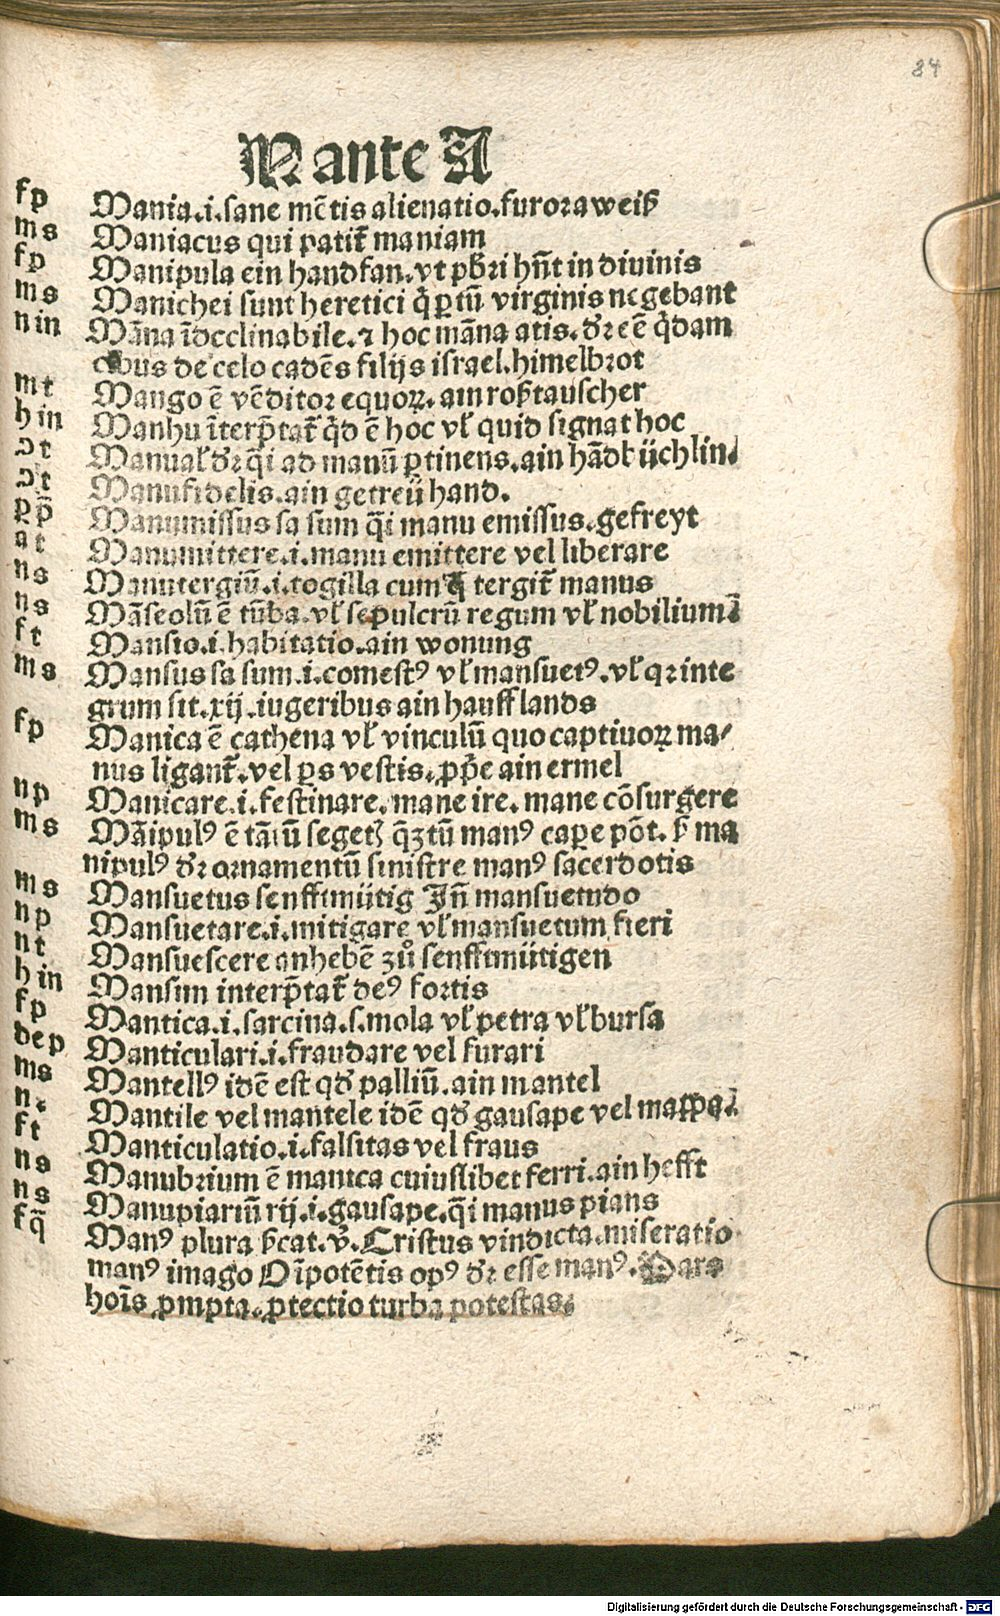 84
N ante A
fp Mania.i.sane mētis alienatio.furor aweiß
ms Maniacus qui patit᷑ maniam
fp Manipula ein handfan.vt pb̄ri hn̄t in diuinis
ms Manichei sunt heretici q̇ ꝑtū virginis negebant
nin Māna īdeclinabile.⁊ hoc māna atis.dr̄ eē q̇dam
cibus de celo cadēs filijs israel.himelbrot
mt Mango ē vēditor equoꝝ.ain roßtauscher
hin Manhu īterp̄tat᷑ q̇d ē hoc vl̓ quid signat hoc
ɔt Manual̓ dr̄ q̄i ad manū ꝑtinens.ain hādbüchlin
ɔt Manufidelis.ain getreü hand.
pp̄ Manumissus sa sum q̄i manu emissus.gefreyt
at Manumittere.i.manu emittere vel liberare
ns Manutergiū.i.togilla cum q̄ tergit᷑ manus
ns Māseolū ē tūba.vl̓ sepulcrū regum vl̓ nobilium
ft Mansio.i.habitatio.ain wonung
ms Mansus sa sum.i.comestꝰ vl̓ mansuetꝰ.vl̓ qꝛ inte
grum sit.xij.iugeribus ain hauff lands
fp Manica ē cathena vl̓ vinculū quo captiuoꝝ ma/
nus ligant᷑.vel ꝑs vestis.ꝓp̄e ain ermel
np Manicare.i.festinare.mane ire.mane cōsurgere
ms Māipulꝰ ē tātū segetꝭ q̄ꝫtū manꝰ capere pōt. ß ma
nipulꝰ dr̄ ornamentū sinistre manꝰ sacerdotis
ms Mansuetus senfftmütig Jn̄ mansuetudo
np Mansuetare.i.mitigare vl̓ mansuetum fieri
nt Mansuescere anhebē zů senfftmütigen
hin Mansim interp̄tat᷑ deꝰ fortis
fp Mantica.i.sarcina.s.mola vl̓ petra vl̓ bursa
dep Manticulari.i.fraudare vel furari
ms Mantellꝰ idē est qd̄ palliū.ain mantel
n. Mantile vel mantele idē qd̄ gausape vel mappa
ft Manticulatio.i.falsitas vel fraus
ns Manubrium ē manica cuiuslibet ferri.ain hefft
ns Manupiariū rij.i.gausape.q̄i manus pians
fq̄ Manꝰ plura ßcat.v̄.Cristus vindicta.miseratio
manꝰ imago Oīpotētis opꝰ dr̄ esse manꝰ.Pars
hoīs ꝓmpta.ꝓtectio turba potestas.
Digitalisierung gefördert durch die Deutsche Forschungsgemeinschaft - DFG